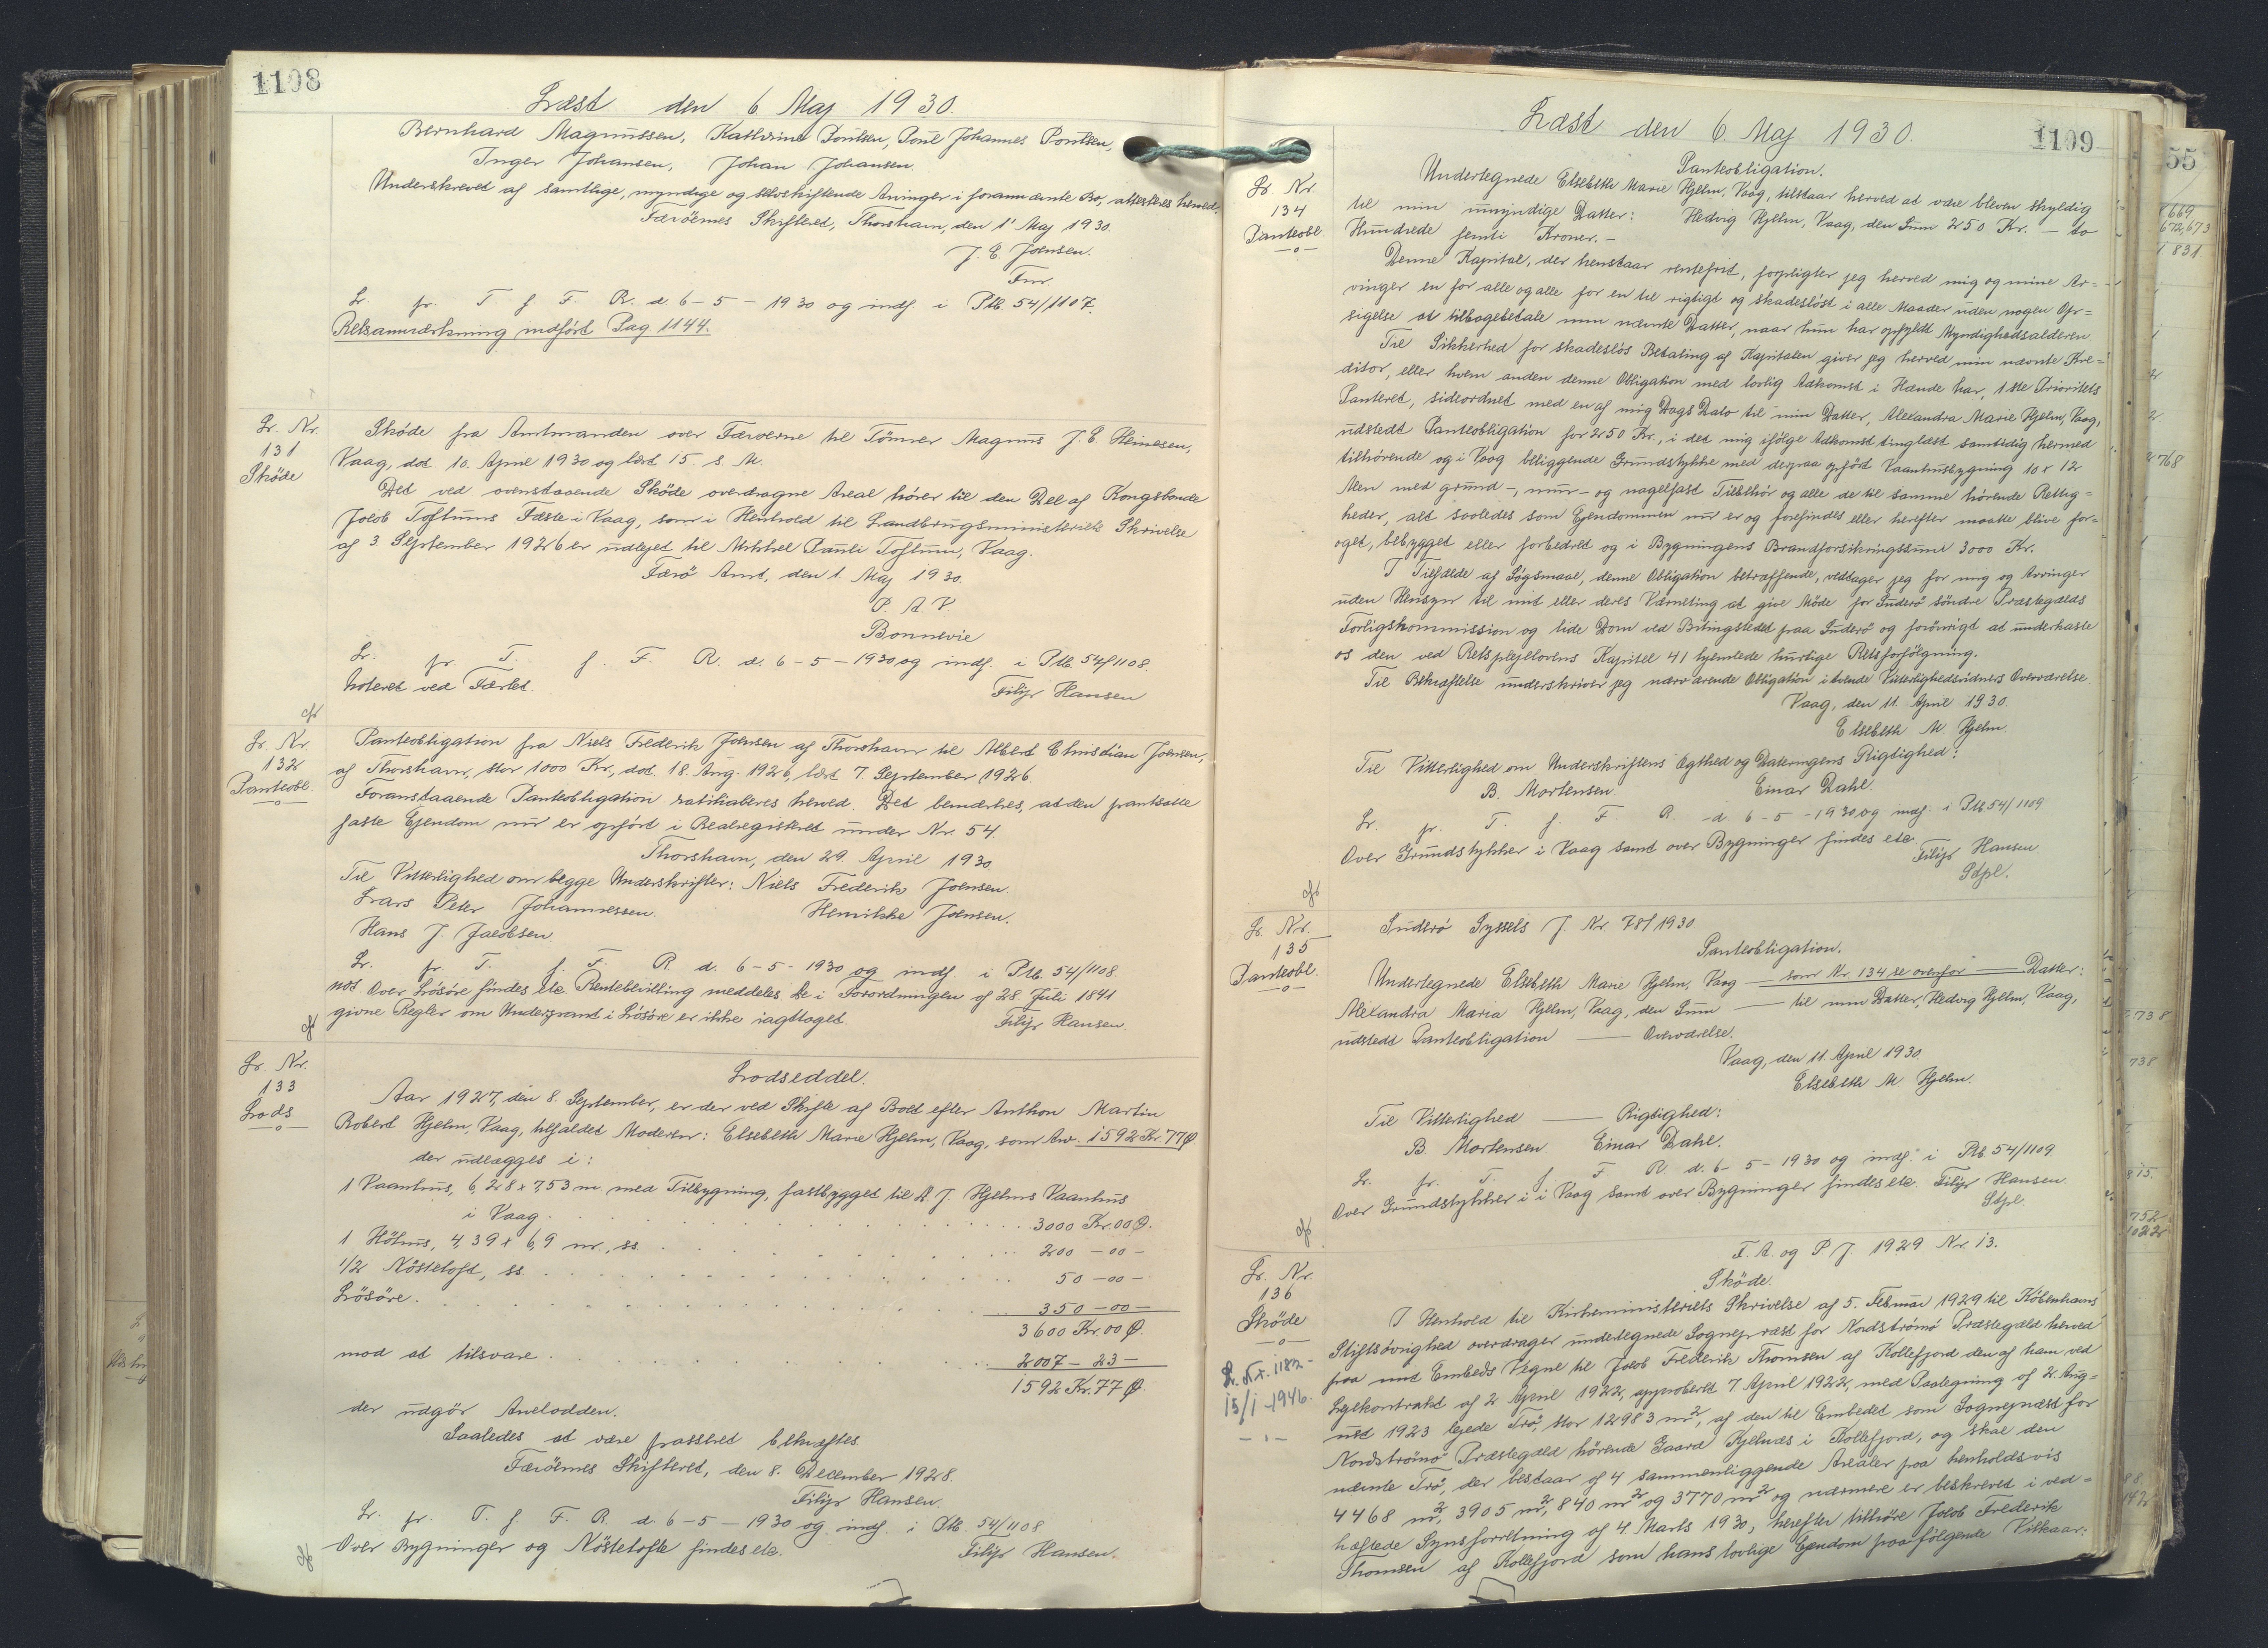 1108
Læst den 6. Maj 1930.
Bernhard Magnussen, Kathrine Poulsen, Poul Johannes Poulsen,
Inger Johansen, Johan Johansen.
Underskrevet af samtlige, myndige og selvskiftende Arvinger i forannævnte Bo, attesteres herved.
Færöernes Skifteret, Thorshavn, den 1' Maj 1930.
J. E. Joensen.
Fm.
Lr. fr. T. f. F. R. d. 6-5-1930 og indf. i Ptb. 54/1107.
Retsanmærkning indført Pag 1144.
Lr. Nr.
131
Sköde
Sköde fra Amtmanden over Færøerne til Tömrer Magnus J. E. Heinesen,
Vaag, dat. 10. April 1930 og læst 15. s. M.
Det ved ovenstaaende Sköde overdragne Areal hörer til den Del af Kongsbonde
Jolob Toftums Fæste i Vaag, som i Henhold til Landbrugsministeriets Skrivelse
af 3. September 1926 er udlejet til Mikkel Pauli Toftum, Vaag.
Færö Amt, den 1. Maj 1930.
P. A. V.
Bonnevie
Lr. fr. T. f. F. R. d. 6-5-1930 og indf. i Ptb. 54/1108.
Noteret ved Fæstet.
Filip Hansen
cfr
Lr. Nr.
132
Panteobl.
Panteobligation fra Niels Frederik Joensen af Thorshavn til Albert Christian Joensen,
af Thorshavn, stor 1000 Kr., dat. 18. Aug. 1926, læst 7. September 1926.
Foranstaaende Panteobligation ratihaberes herved. Det bemærkes, at den pantsatte
faste Ejendom nu er opfört i Realregistret under Nr. 54.
Thorshavn, den 29. April 1930.
Til Vitterlighed om begge Underskrifter: Niels Frederik Joensen.
Lars Peter Johannessen. Henrikke Joensen.
Hans J. Jacobsen
Lr. fr. T. f. F. R. d. 6-5-1930 og indf. i Ptb. 54/1108.
Over Lösöre findes etc. Rentebevilling meddeles. De i Forordningen af 28. Juli 1841
givne Regler om Underpant i Lösöre er ikke iagttaget.
Filip Hansen.
cfr
Lr. Nr.
133
Lods
Lodseddel.
Aar 1927, den 8. September, er der ved Skifte af Boet efter Anthon Martin
Robert Hjelm, Vaag, tilfaldet Moderen: Elsebeth Marie Hjelm, Vaag, som Arv. 1592 Kr. 77 Ø.
der udlægges i:
1 Vaanhus, 6,28 x 7,53 m med Tilbygning, fastbygget til A. J. Hjelms Vaanhus
i Vaag. 3000 Kr. 00 Ø.
1 Höhus, 4,39 x 6,9 m., ss. 200 - 00 -
1/2 Nöstetoft, ss. 50 - 00 -
Lösöre. 350 - 00 -
3600 Kr. 00 Ø.
mod at tilsvare. 2007 - 23 -
1592 Kr. 77 Ø.
der udgör Arvelodden.
Saaledes at være passeret bekræftes
Færöernes Skifteret, den 8. December 1928.
Filip Hansen.
Lr. fr. T. f. F. R. d. 6-5-1930 og indf. i Ptb. 54/1108
Over Bygninger og Nöstetofte findes etc.
Filip Hansen.
cfr
1109
Læst den 6. Maj 1930.
Lr. Nr.
134
Panteobl.
Panteobligation.
Undertegnede Elsebeth Marie Hjelm, Vaag, tilstaar herved at være bleven skyldig
til min umyndige Datter: Hedvig Hjelm, Vaag, den Sum 250 Kr. - to
Hundrede femti Kroner. -
Denne Kapital, der henstaar rentefrit, forpligter jeg herved mig og mine Ar=
vinger en for alle og alle for en til rigtigt og skadeslöst i alle Maader uden nogen Op=
sigelse at tilbagebetale min nævnte Datter, naar hun har opfyldt Myndighedsalderen
Til Sikkerhed for skadeslös Betaling af Kapitalen giver jeg herved min nævnte Kre=
ditor, eller hvem anden denne Obligation med lovlig Adkomst i Hænde har, 1ste Prioritets
Panteret, sideordnet med en af mig Dags Dato til min Datter, Alexandra Marie Hjelm, Vaag,
udstedt Panteobligation for 250 Kr., i det mig ifölge Adkomst tinglæst samtidig hermed
tilhørende og i Vaag beliggende Grundstykke med derpaa opfört Vaanhusbygning 10 x 12
Alen med grund-, mur- og nagelfast Tilbehör og alle de til samme hörende Rettig=
heder, alt saaledes som Ejendommen nu er og forefindes eller herefter maatte blive for=
øget, bebygget eller forbedret og i Bygningens Brandforsikringssum 3000 Kr.
I Tilfælde af Sögsmaal, denne Obligation betræffende, vedtager jeg for mig og Arvinger
uden Hensyn til mit eller deres Værneting at give Möde for Suderö söndre Præstegælds
Forligskommission og lide Dom ved Bitingstedet paa Suderö og forövrigt at underkaste
os den ved Retsplejelovens Kapitel 41 hjemlede hurtige Retsforfölgning.
Til Bekræftelse underskriver jeg nærværende Obligation i tvende Vitterlighedsvidners Overværelse.
Vaag, den 11. April 1930.
Elsebeth M Hjelm.
Til Vitterlighed om Underskriftens Ægthed og Dateringens Rigtighed:
B. Mortensen. Einar Dahl.
Lr. fr. T. f. F. R. d. 6-5-1930 og indf. i Ptb 54/1109
Over Grundstykker i Vaag samt over Bygninger findes etc.
Filip Hansen
Stpl.
cfr
Lr. Nr.
135
Panteobl.
Suderö Syssels J. Nr. 78/1930
Panteobligation.
Undertegnede Elsebeth Marie Hjelm, Vaag — som Nr. 134 se ovenfor — Datter:
Alexandra Maria Hjelm, Vaag, den Sum — til min Datter, Hedvig Hjelm, Vaag,
udstedt Panteobligation — Overværelse.
Vaag, den 11. April 1930.
Elsebeth M Hjelm.
Til Vitterlighed — Rigtighed:
B. Mortensen Einar Dahl.
Lr. fr. T. f. F. R. d. 6-5-1930 og indf. i Ptb 54/1109
Over Grundstykker i i Vaag samt over Bygninger findes etc. Filip Hansen.
Stpl.
cfr
Lr. Nr.
136
Sköde
Lr. Nr. 1182-
15/1-1946.
F. A. og P J. 1929 Nr. 13.
Sköde.
I Henhold til Kirkeministeriets Skrivelse af 5. Februar 1929 til Københavns
Stiftsøvrighed overdrager undertegnede Sognepræst for Nordströmö Præstegæld herved
paa mit Embeds Vegne til Jolob Frederik Thomsen af Kollefjord den af ham ved
Lejekontrakt af 2. April 1922, approberet 7. April 1922, med Paategning af 2. Aug=
ust 1923 lejede Trö, stor 12983 m², af den til Embedet som Sognepræst for
Nordströmö Præstegæld hörende Gaard Kjelnæs i Kollefjord, og skal den
nævnte Trö, der bestaar af 4 sammenliggende Arealer paa henholdsvis
4468 m², 3905 m², 840 m² og 3770 m² og nærmere er beskrevet i ved=
hæftede Synsforretning af 4 Marts 1930, herefter tilhöre Jolob Frederik
Thomsen af Kollefjord som hans lovlige Ejendom paa følgende Vilkaar:
55
669
672,673
1831
2768
738
738
752
1022
142